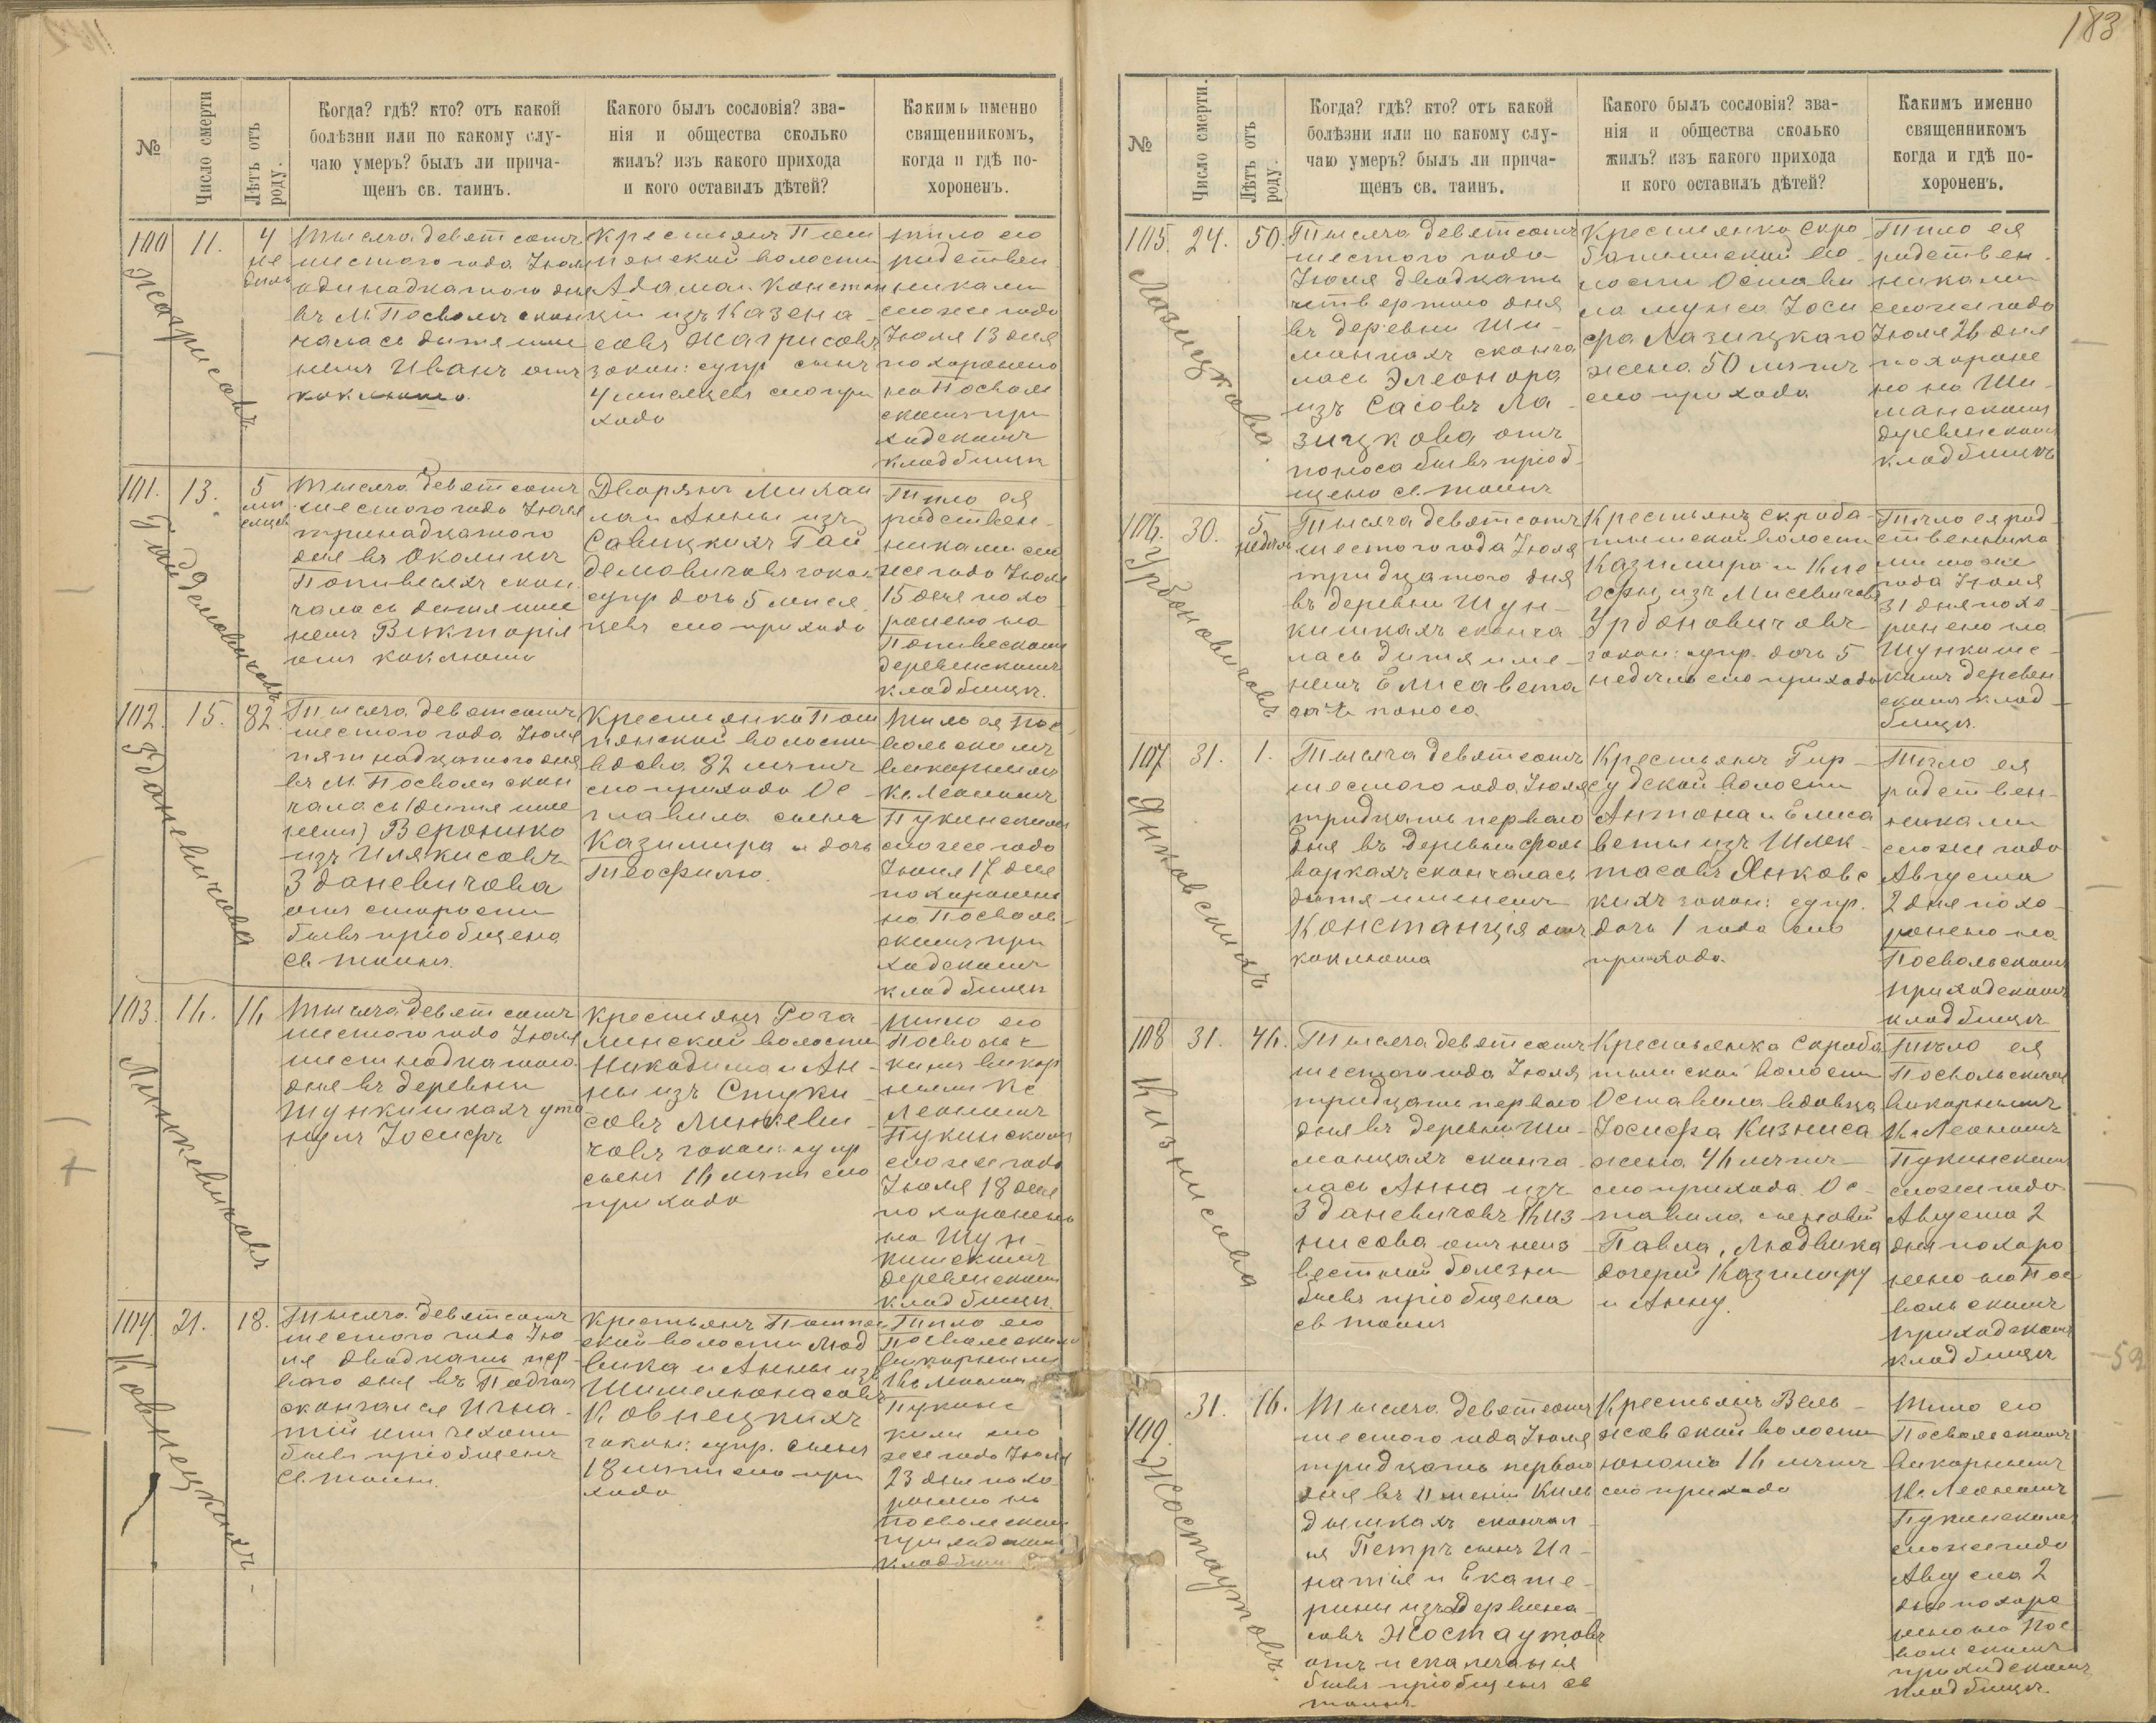 183
№
Число смерти
Лѣтъ отъ роду.
Когда? гдѣ? кто? отъ какой
болѣзни или по какому слу-
чаю умеръ? былъ ли прича-
щенъ св. таинъ.
Какого былъ сословія? зва-
нія и общества сколько
жилъ? изъ какого прихода
и кого оставилъ дѣтей?
Какимъ именно
священникомъ,
когда и гдѣ по-
хороненъ.
100
11.
Жагрисовъ
Тысяча девятсотъ
шестого года Іюля
одинадцатого дня
въ М. Посволѣ скон
чалась дитя име
немъ Иванъ отъ
коклюша.
Крестьянъ Пом
пянской волости
Адама и Констан
ціи изъ Казена
совъ Жагрисовъ
закон: супр сынъ
4 сего при
хода
Тѣло его
родствен
никами
сегоже года
Іюля 13 дня
похоронено
на Посволь
скомъ при
ходскомъ
кладбищѣ
101.
13.
5
мѣ
сяцев
Гайделовичовъ
Тысяча девятсотъ
шестого года Іюля
тринадцатого
дня въ Околицѣ
скон
чалась дитя име
немъ Викторія
отъ коклюша
Дворянъ Михаи
ла и Анны изъ
Савицкихъ Гай
закон
супр дочь 5 мѣся
цевъ сего прихода
Тѣло ея
родствен
никами сего
же года Іюля
15 дня похо
ронено на
деревенскомъ
кладбищѣ.
102.
15.
82
Здоневичова
Тысяча девятсотъ
шестого года Іюля
пятнадцатого дня
въ М. Посволѣ скон
чалась (дитя име
немъ) Вероника
изъ Илякисовъ
Здоневичова
отъ старости
бывъ пріобщена
св. таинъ.
Крестьянка Пом
пянской волости
вдова 82 лѣтъ
сего прихода Ос-
тавила сына
Казимира и дочь
Теофилю.
Тѣло ея Пос
вольскимъ
викарнымъ
Кс. Леономъ
Пукинскимъ
сегоже года
Іюля 17 дня
похоронено
на Посволь
скомъ при
ходскомъ
кладбищѣ
103.
16.
16
Минкевичовъ
Тысяча девятсотъ
шестого года Іюля
шестнадцатого
дня въ деревни
Шункишкахъ уто
нулъ Іосифъ
Крестьянъ Рога
линской волости
Никодима и Ан-
ны изъ Стуки-
совъ Минкеви
човъ закон: супр
сынъ 16 лѣтъ сего
прихода
Тѣло его
Посволь
кимъ викар
нымъ Кс
Леономъ
Пукинскимъ
сегоже года
Іюля 18 дня
похоронено
на Шун-
кишскомъ
деревенскомъ
кладбищѣ.
104.
21.
18.
Ковнецкихъ
Тысяча девятсотъ
шестого года Ію-
ля двадцать пер-
ваго дня въ
скончался Игна-
тій отъ чахотки
бывъ пріобщенъ
св. таинъ.
Крестьянъ
ской волости Люд
вика и Анны изъ
Шимелюнасовъ
Ковнецкихъ
закон: супр. сынъ
18 лѣтъ сего при
хода
Тѣло его
Посвольскимъ
викарнымъ
Кс Леономъ
Пукинс
кимъ сего
же года Іюля
23 дня похо
ронено на
Посвольскомъ
приходскомъ
кладбищѣ
№
Число смерти.
Лѣтъ отъ роду.
Когда? гдѣ? кто? отъ какой
болѣзни или по какому слу-
чаю умеръ? былъ ли прича-
щенъ св. таинъ.
Какого былъ сословія? зва-
нія и общества сколько
жилъ? изъ какого прихода
и кого оставилъ дѣтей?
Какимъ именно
священникомъ
когда и гдѣ по-
хороненъ.
105.
24.
50.
Лазицкова
Тысяча девятсотъ
шестого года
Іюля двадцать
четвертаго дня
въ деревни Ши-
манцахъ сконча
лась Элеонора
изъ Сасовъ Ла-
зицкова отъ
поноса бывъ пріоб-
щена св. таинъ
Крестьянка Скро
батишской во-
лости Остави
ла мужа Іоси
фа Лазицкаго
жена 50 лѣтъ
сего прихода
Тѣло ея
родствен-
никами
сегоже года
Іюля 26 дня
похороне
но на Ши-
манскомъ
деревенскомъ
кладбищѣ
106.
30.
5
недѣль
Урбоновичовъ
Тысяча девятсотъ
шестого года Іюля
тридцатого дня
въ деревни Шун-
кишкахъ сконча
лась дитя име-
немъ Елисавета
отъ поноса.
Крестьянъ Скроба-
тишской волости
Казимира и
изъ Мисевичовъ
Урбоновичовъ
закон: супр. дочь 5
недѣль сего прихода
Тѣло ея род-
ственника
ми сегоже
года Іюля
31 дня похо
ронено на
Шункишс-
комъ деревен
скомъ клад-
бищѣ.
107
31.
1.
Янковскихъ
Тысяча девятсотъ
шестого года Іюля
тридцать перваго
дня въ деревни Фоль
варкахъ скончалась
дитя именемъ
Констанція отъ
коклюша
Крестьянъ Гир-
судской волости
Антона и Елиса
веты изъ Шлек-
тасовъ Янковс
кихъ закон: супр.
дочь 1 года сего
прихода.
Тѣло ея
родствен-
никами
сегоже года
Августа
2 дня похо-
ронено на
Посвольскомъ
приходскомъ
кладбищѣ
108
31.
46.
Кизнисова
Тысяча девятсотъ
шестого года Іюля
тридцать перваго
дня въ деревни Ши-
манцахъ сконча-
лась Анна изъ
Зданевичовъ Киз-
нисова отъ неиз
вестной болезни
бывъ пріобщена
св таинъ
Крестьянка Скроба
тишской волости
Оставила вдовца
Іосифа Кизниса
жена 46 лѣтъ
сего прихода. Ос-
тавила сыновей
Павла, Людвика
дочерей Казимиру
и Анну.
Тѣло ея
Посвольскимъ
викарнымъ
Кс. Леономъ
Пукинскимъ
сегоже года
Августа 2
дня похоро
нено на Пос
вольскомъ
приходскомъ
кладбищѣ
59
109.
31.
16.
Жостаутовъ.
Тысяча девятсотъ
шестого года Іюля
тридцать перваго
дня въ имѣніи Киль
дышкахъ скончал-
ся Петръ сынъ Иг-
натія и Екате-
рины изъ Дервина-
совъ Жостаутовъ
отъ искалечанія
бывъ пріобщенъ св
таинъ.
Крестьянъ Вель-
жовской волости
юноша 16 лѣтъ
сего прихода
Тѣло его
Посвольскимъ
викарнымъ
Кс. Леономъ
Пукинскимъ
сегоже года
Августа 2
дня похоро
нено на Пос
вольскомъ
приходскомъ
кладбищѣ.